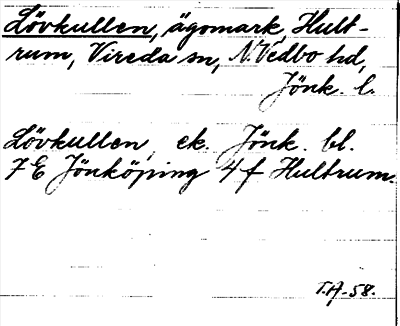 Lövkullen, ägomark, Hult-
rum, Vireda sn, N. Vedbo hd,
Jönk. l.
Lövkullen, ek. Jönk. bl.
7E Jönköping 4f Hultrum.
T.A-58.